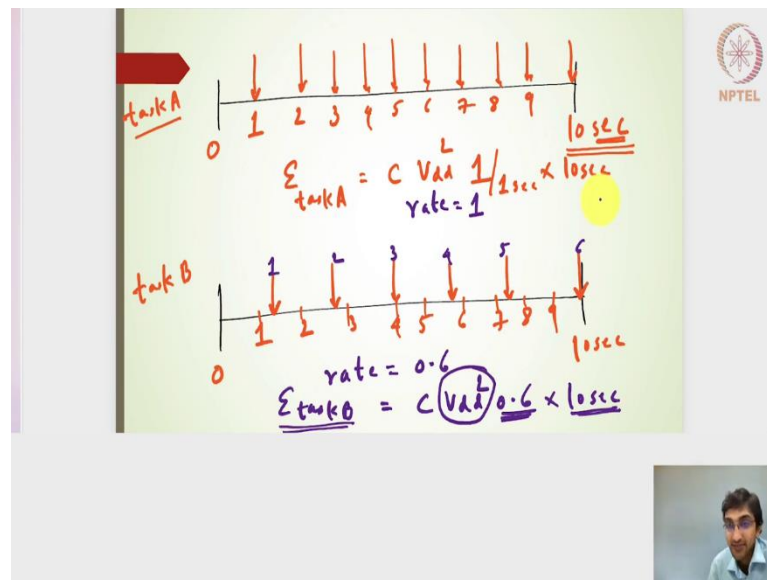 NPTEL
task A
0 1 2 3 4 5 6 7 8 9 10 sec
E task A = C Vdd 2 1/1 sec × 10 sec
rate = 1
task B
1 2 3 4 5 6
0 1 2 3 4 5 6 7 8 9 10 sec
rate = 0.6
E task B = C Vdd 2 0.6 × 10 sec